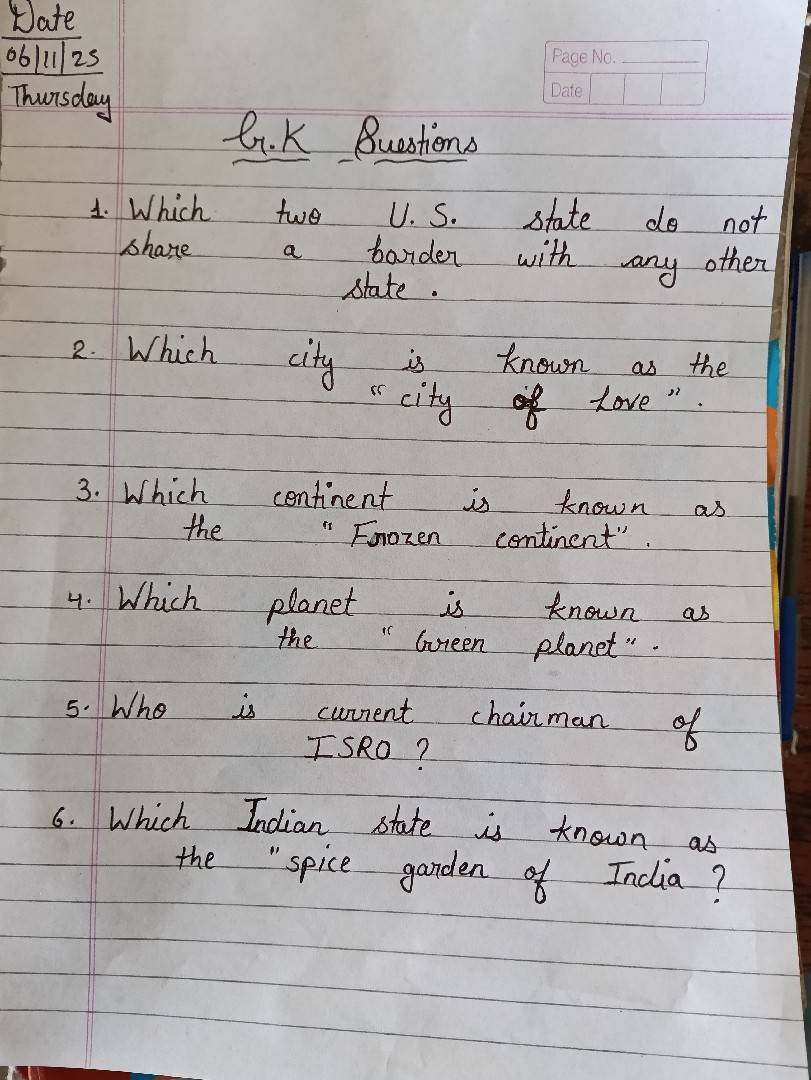 Date
06/11/25
Thursday
Page No.
Date
G.K Questions
1. Which two U.S. state do not
share a border with any other
state.
2. Which city is known as the
"city of Love".
3. Which continent is known as
the "Frozen continent".
4. Which planet is known as
the "Green planet".
5. Who is current chairman of
ISRO ?
6. Which Indian state is known as
the "spice garden of India ?